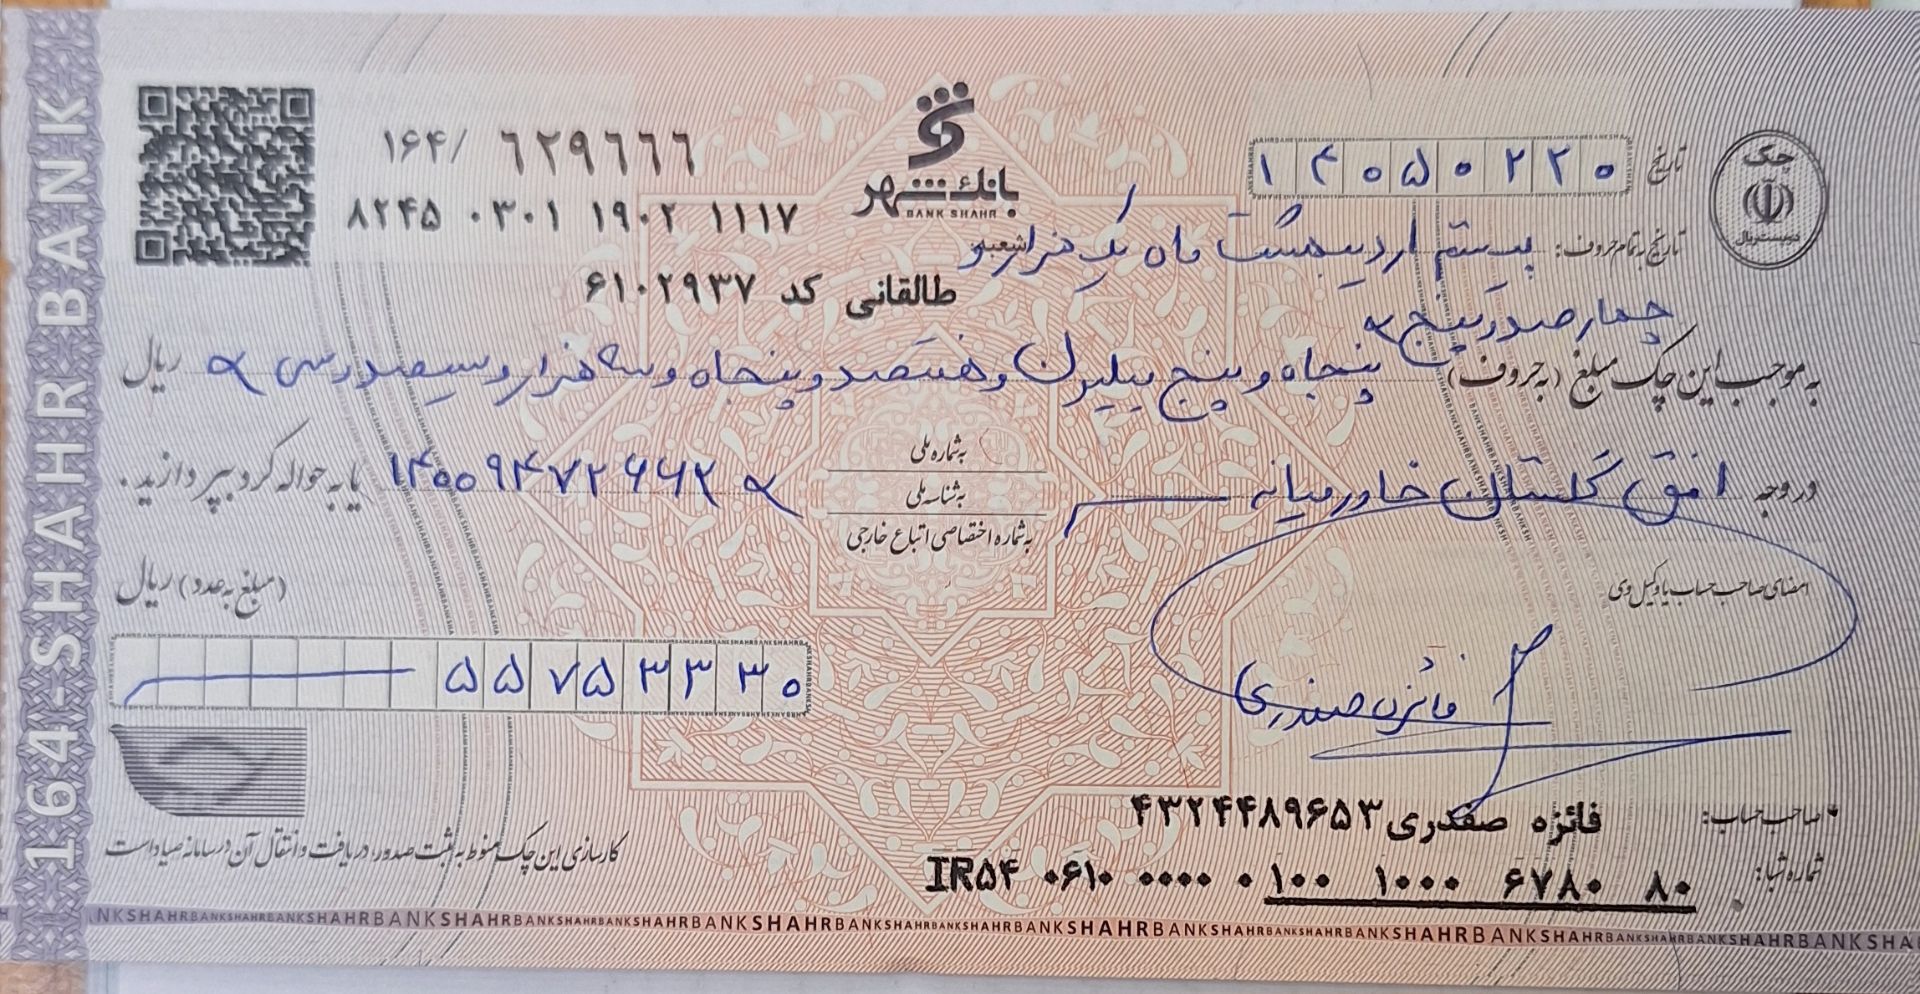 164-SHAHR BANK
۱۶۴/ ۶۲۹۶۶۶
۸۲۴۵ ۰۳۰۱ ۱۹۰۲ ۱۱۱۷
بانک شهر
BANK SHAHR
شعبه:
طالقانی کد ۶۱۰۲۹۳۷
چک
دویست ریال
تاریخ ۱۴۰۵۰۲۲۰
تاریخ به تمام حروف: بیستم اردیبهشت ماه یک هزار و
چهارصد و پنج
به موجب این چک مبلغ (به حروف) پنجاه و پنج میلیون و هفتصد و پنجاه و سه هزار و سیصد و سی ریال
در وجه افق گلستان خاورمیانه
به شماره ملی
به شناسه ملی
به شماره اختصاصی اتباع خارجی
۱۴۰۰۹۴۷۲۶۶۲ یا به حواله کرد بپردازید.
(مبلغ به عدد) ریال
۵۵۷۵۳۳۳۰
امضای صاحب حساب یا وکیل وی
فائزه صفدری
صاحب حساب: فائزه صفدری ۴۳۲۴۴۸۹۶۵۳
شماره شبا: IR۵۴ ۰۶۱۰ ۰۰۰۰ ۰۱۰۰ ۱۰۰۰ ۶۷۸۰ ۸۰
کارسازی این چک منوط به ثبت صدور، دریافت و انتقال آن در سامانه صیاد است